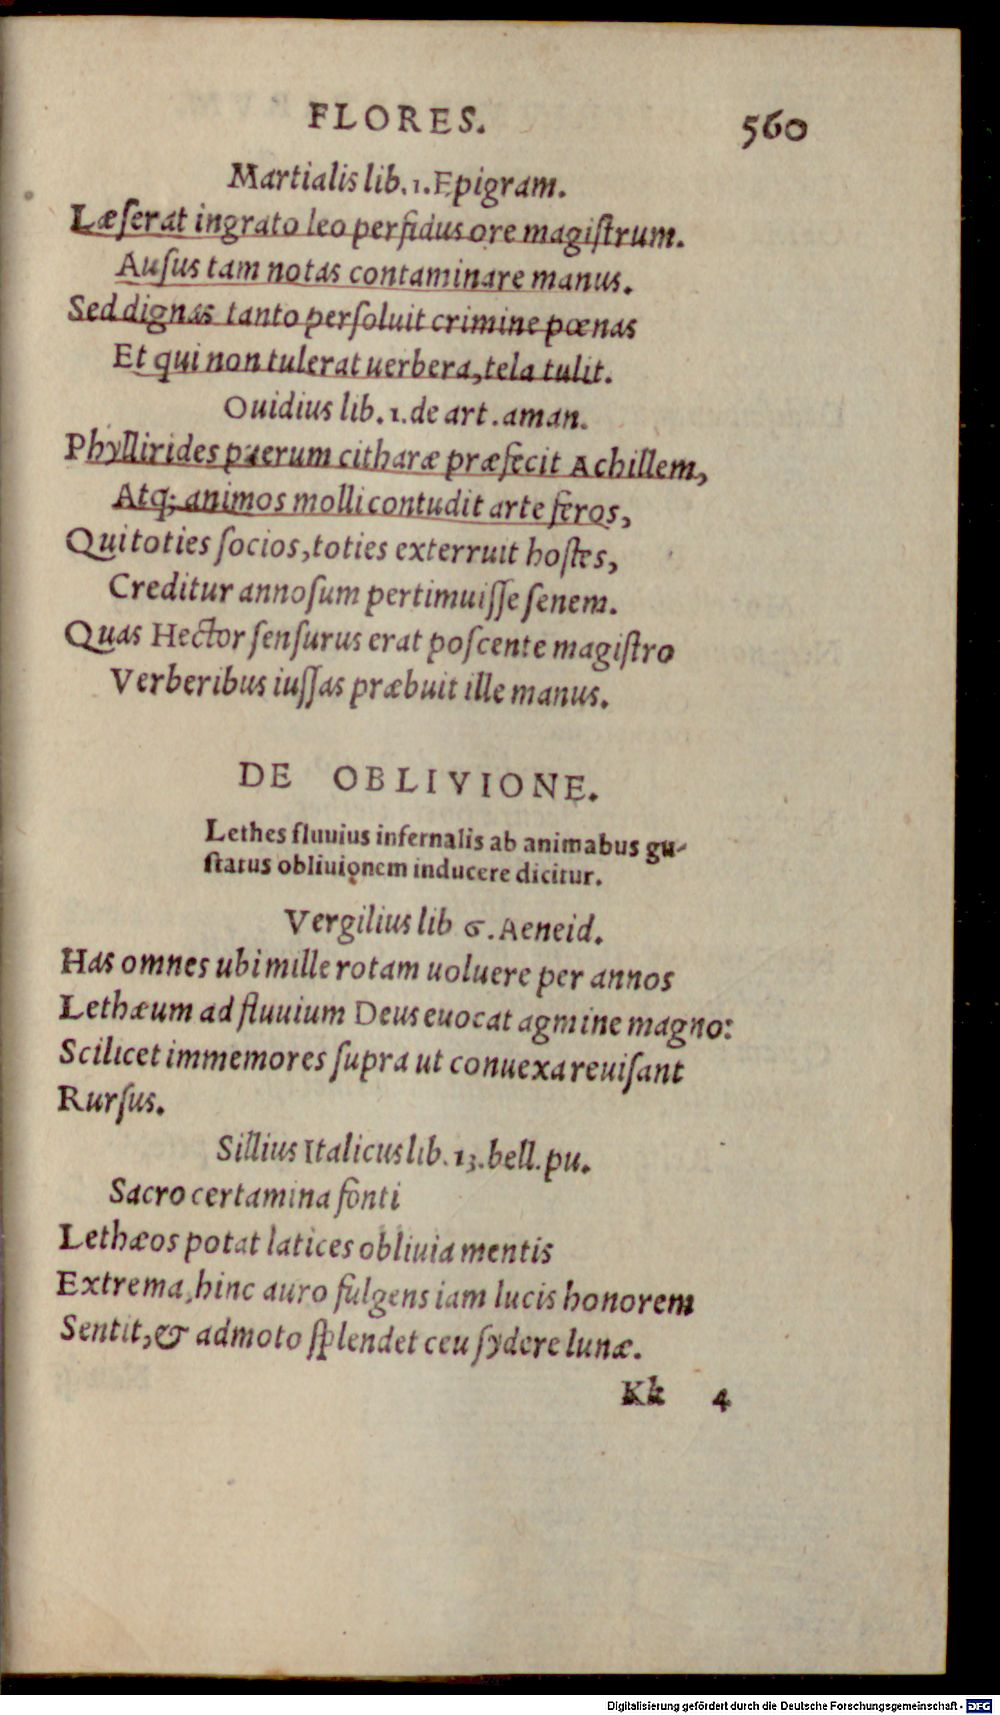 FLORES. 560
Martialis lib. 1. Epigram.
Læſerat ingrato leo perfidus ore magiſtrum.
Auſus tam notas contaminare manus.
Sed dignas tanto perſoluit crimine pœnas
Et qui non tulerat uerbera, tela tulit.
Ouidius lib. 1. de art. aman.
Phyllirides puerum citharæ præfecit Achillem,
Atq; animos molli contudit arte feros,
Qui toties ſocios, toties exterruit hoſtes,
Creditur annoſum pertimuiſſe ſenem.
Quas Hector ſenſurus erat poſcente magiſtro
Verberibus iuſſas præbuit ille manus.
DE OBLIVIONE.
Lethes fluuius infernalis ab animabus gu-
ſtatus obliuionem inducere dicitur.
Vergilius lib 6. Aeneid.
Has omnes ubi mille rotam uoluere per annos
Lethæum ad fluuium Deus euocat agmine magno:
Scilicet immemores ſupra ut conuexa reuiſant
Rurſus.
Sillius Italicus lib. 13. bell. pu.
Sacro certamina fonti
Lethæos potat latices obliuia mentis
Extrema, hinc auro fulgens iam lucis honorem
Sentit, & admoto ſplendet ceu ſydere lunæ.
Kk 4
Digitalisierung gefördert durch die Deutsche Forschungsgemeinschaft - DFG